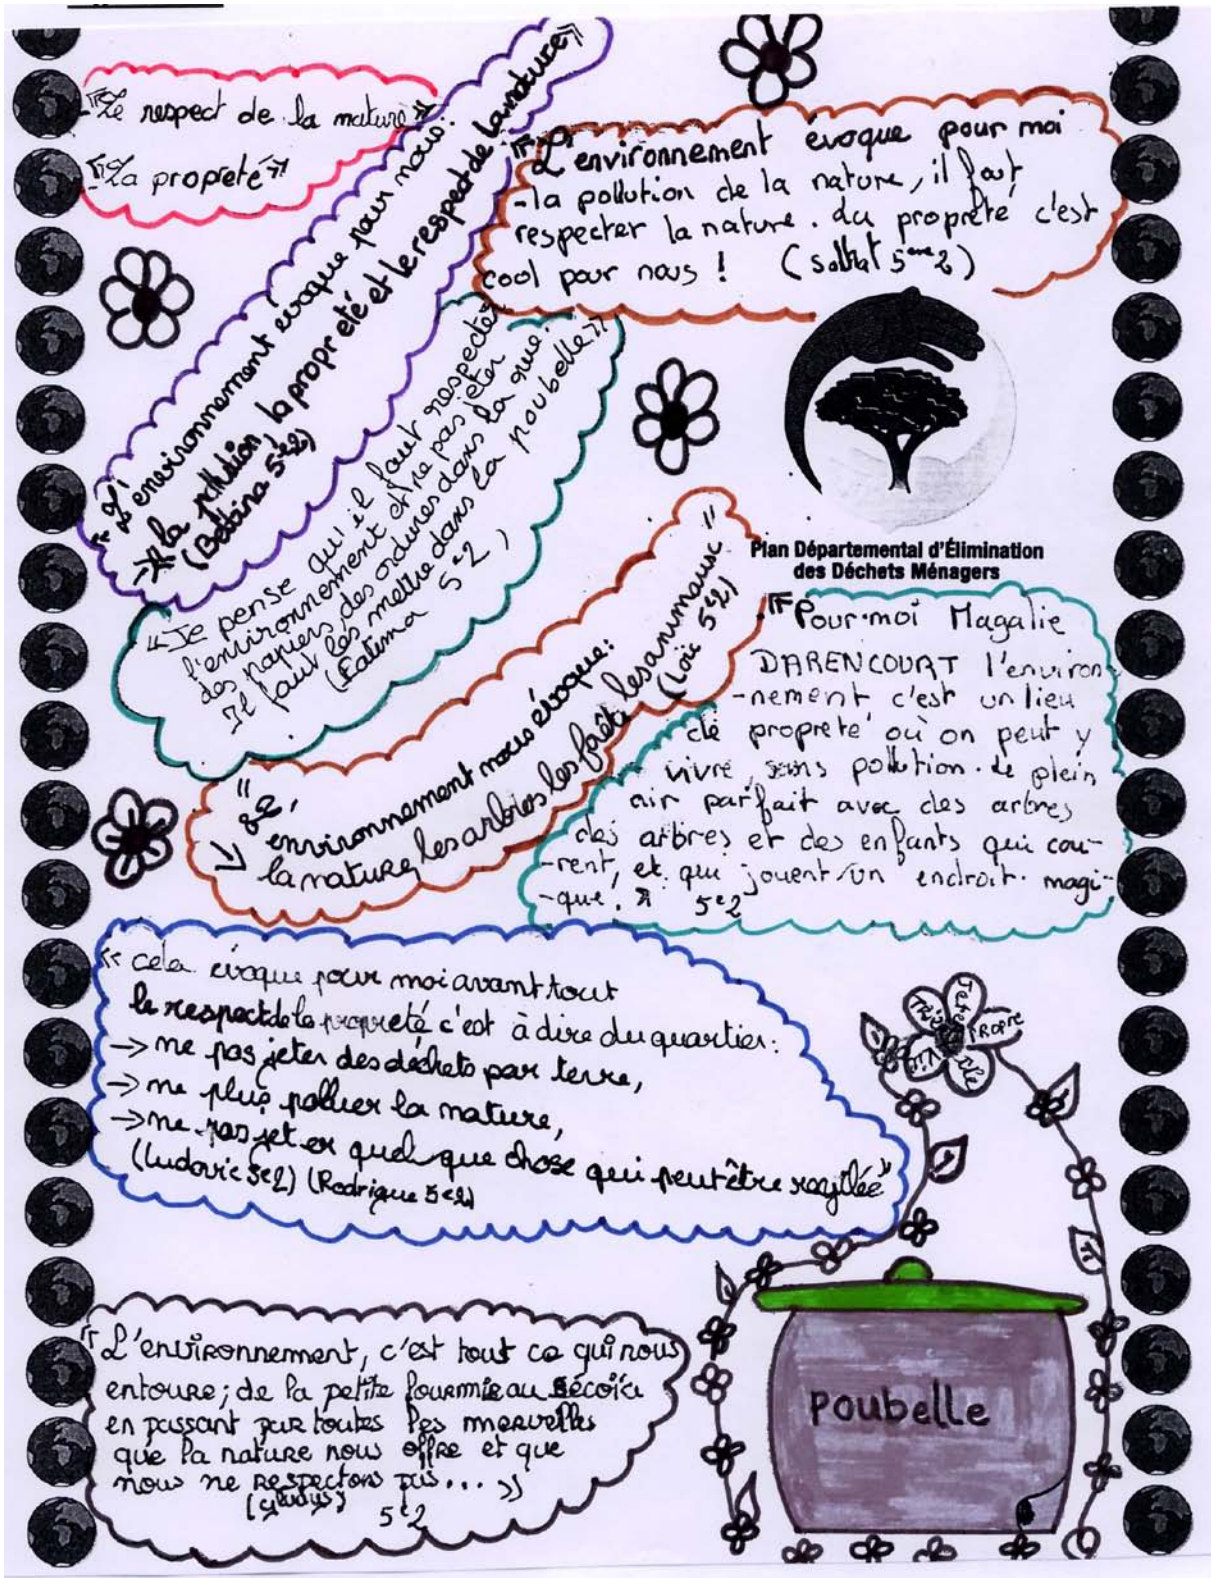 "Le respect de la nature"
"La propreté"
"L'environnement évoque pour nous:
→ la pollution, la propreté et le respect de la nature"
(Bettina 5e2)
"L'environnement évoque pour moi
-la pollution de la nature, il faut
respecter la nature. La propreté c'est
cool pour nous ! ( 5eme2)
"Je pense qu'il faut respecter
l'environnement et ne pas jeter
des papiers, des ordures dans la
Il faut les mettre dans la poubelle"
(Fatima 5e2)
Plan Départemental d'Élimination
des Déchets Ménagers
"L'
environnement nous évoque:
→ la nature, les arbres les forêts les animaux"
(Loïc 5e2)
"Pour moi Magalie
DARENCOURT l'environ-
-nement c'est un lieu
de propreté où on peut y
vivre, sans pollution. Le plein
air parfait avec des arbres
des arbres et des enfants qui cou-
-rent, et qui jouent un endroit magi-
-que! " 5e2
"cela évoque pour moi avant tout
le respect de la propreté c'est à dire du quartier:
→ ne pas jeter des déchets par terre,
→ ne plus polluer la nature,
→ ne pas jeter quelque chose qui peut être recyclée"
(Ludovic 5e2) (Rodrigue 5e2)
"L'environnement, c'est tout ce qui nous
entoure; de la petite fourmie au sécoïa
en passant par toutes les merveilles
que la nature nous offre et que
nous ne respectons pas... "
(Gladys) 5e2
PROPRE
POUBELLE